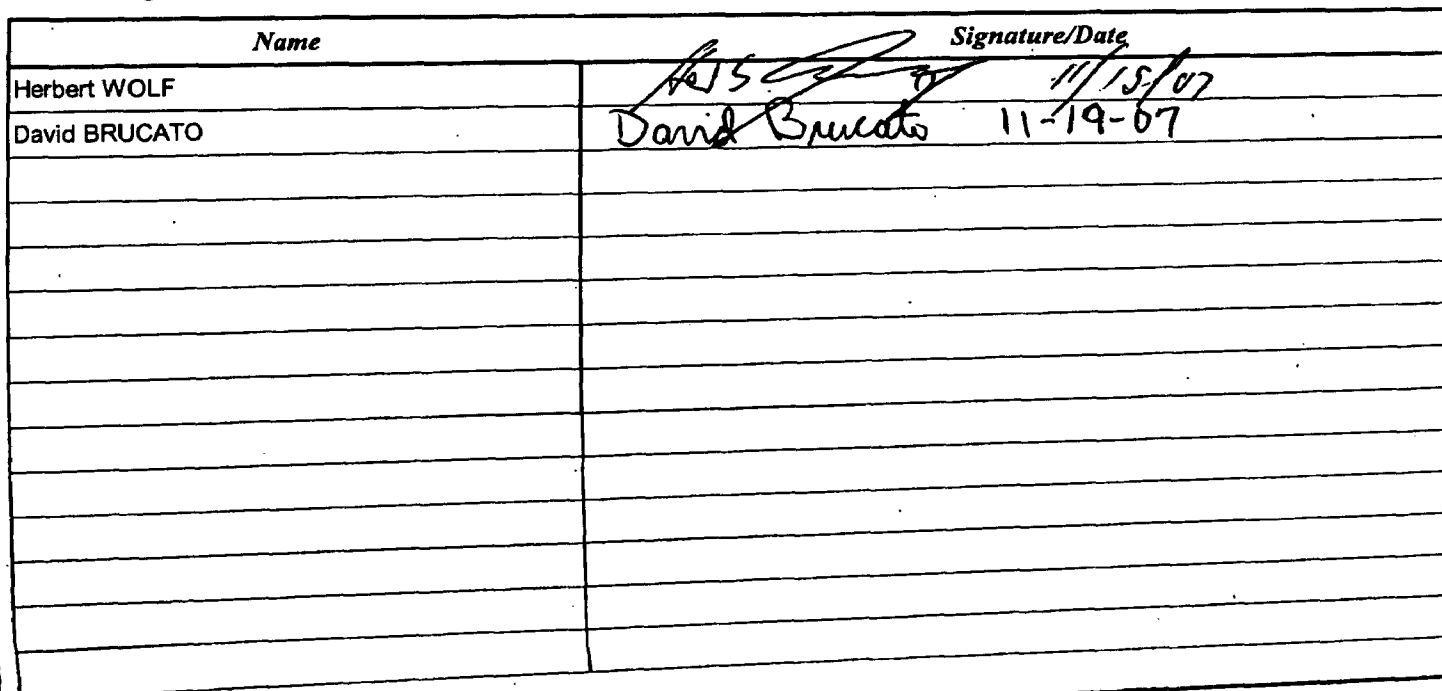 Name Signature/Date
Herbert WOLF 11/15/07
David BRUCATO David Brucato 11-19-07